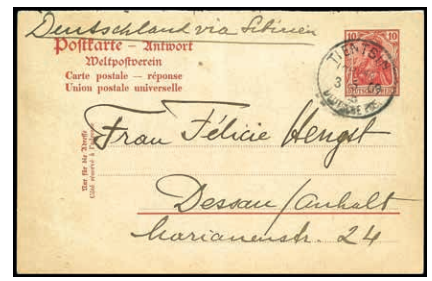 Deutschland via Sibirien
Postkarte – Antwort
Weltpostverein
Carte postale – réponse
Union postale universelle
10 10
TIENTSIN
Nur für die Adresse
Côté réservé à l'adresse
Frau Félicie Hengst
Dessau/Anhalt
Marianenstr. 24